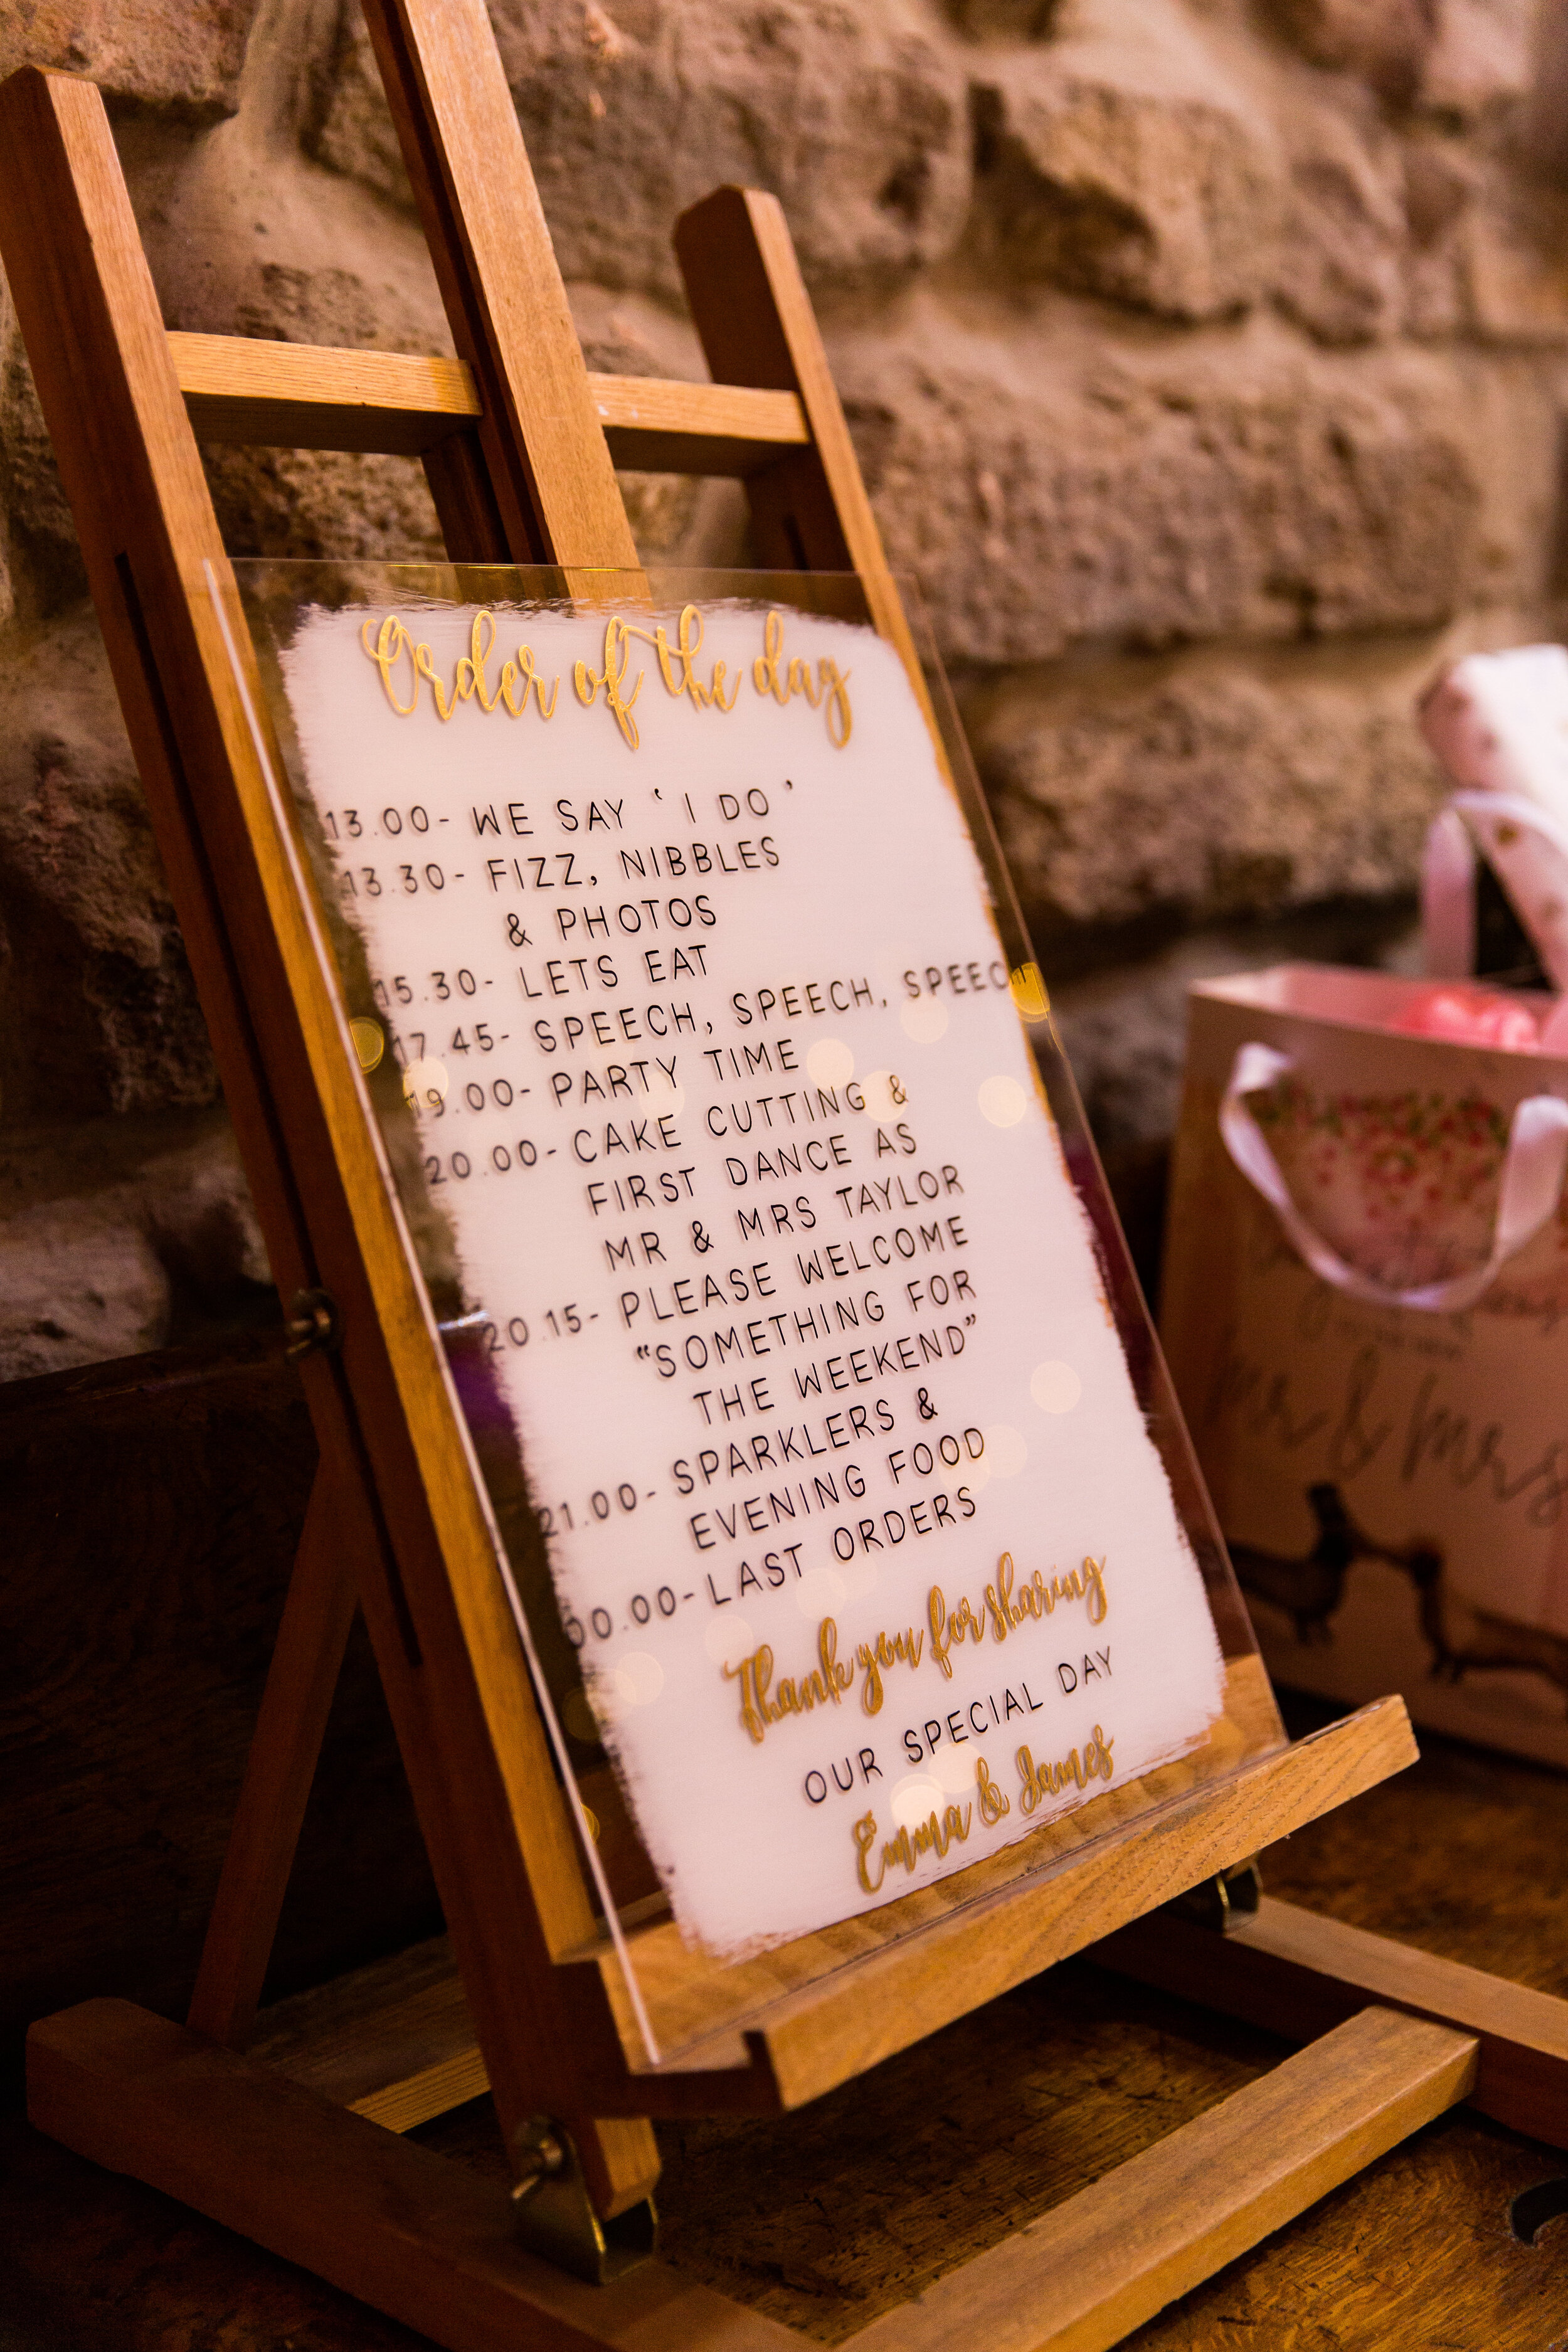 Order of the day
13.00- WE SAY ‘ I DO ’
13.30- FIZZ, NIBBLES
& PHOTOS
15.30- LETS EAT
17.45- SPEECH, SPEECH, SPEECH
19.00- PARTY TIME
20.00- CAKE CUTTING &
FIRST DANCE AS
MR & MRS TAYLOR
20.15- PLEASE WELCOME
“SOMETHING FOR
THE WEEKEND”
21.00- SPARKLERS &
EVENING FOOD
00.00- LAST ORDERS
Thank you for sharing
OUR SPECIAL DAY
Emma & James
mr & mrs